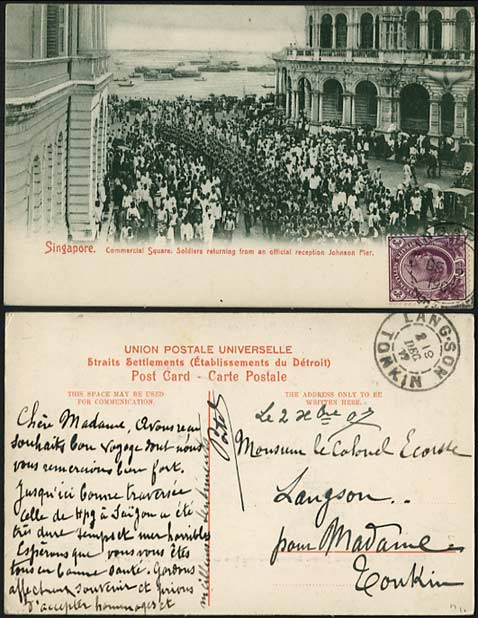 Singapore. Commercial Square. Soldiers returning from an official reception Johnson Pier.
UNION POSTALE UNIVERSELLE
Straits Settlements (Établissements du Détroit)
Post Card - Carte Postale
THIS SPACE MAY BE USED
FOR COMMUNICATION.
THE ADDRESS ONLY TO BE
WRITTEN HERE.
LANG-SON
2
DEC
TONKIN
Le 2 Xbre 07
Monsieur le Colonel
Langson
pour Madame
Tonkin
Chère Madame, A vous
souhaits bon voyage dont nous
vous remercions bien fort.
Jusqu'ici bonne traversée
celle de Hpg à Saïgon a été
très dure temps et mer horribles
Espérons que vous vous êtes
tous en bonne santé. Gardons
affectueux souvenir et prions
d'accepter hommages et
meilleurs